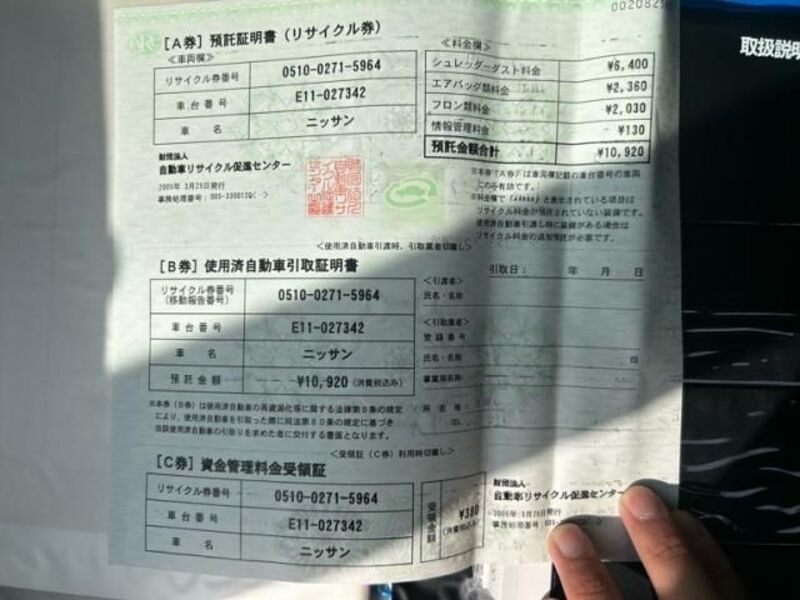 0020825
取扱説明
[A券] 預託証明書(リサイクル券)
≪車両欄≫
リサイクル券番号 0510-0271-5964
車台番号 E11-027342
車名 ニッサン
≪料金欄≫
シュレッダーダスト料金 ¥6,400
エアバッグ類料金 ¥2,360
フロン類料金 ¥2,030
情報管理料金 ¥130
預託金額合計 ¥10,920
財団法人
自動車リサイクル促進センター
2005年 3月25日発行
※本券(A券)は車両欄記載の車台番号の車両
にのみ有効です。
※料金欄で と表示されている項目は
リサイクル料金が預託されていない装備です。
使用済自動車引渡し時に装備がある場合は
リサイクル料金の追加預託が必要です。
<使用済自動車引渡時、引取業者切離し>
[B券] 使用済自動車引取証明書
引取日: 年 月 日
リサイクル券番号
(移動報告番号) 0510-0271-5964
車台番号 E11-027342
車名 ニッサン
預託金額 --¥10,920(消費税込み)
<引渡者>
氏名・名称
<引取業者>
登録番号
氏名・名称 印
事業所名称
所在地
TEL
※本券(B券)は使用済自動車の再資源化等に関する法律第9条の規定
により、使用済自動車を引取った際に同法第80条の規定に基づき
当該使用済自動車の引取りを求めた者に交付する書面となります。
<受領証(C券)利用時切離し>
[C券] 資金管理料金受領証
リサイクル券番号 0510-0271-5964
車台番号 E11-027342
車名 ニッサン
受領金額 ¥380
(消費税込み)
財団法人
自動車リサイクル促進センター
2005年 3月25日発行